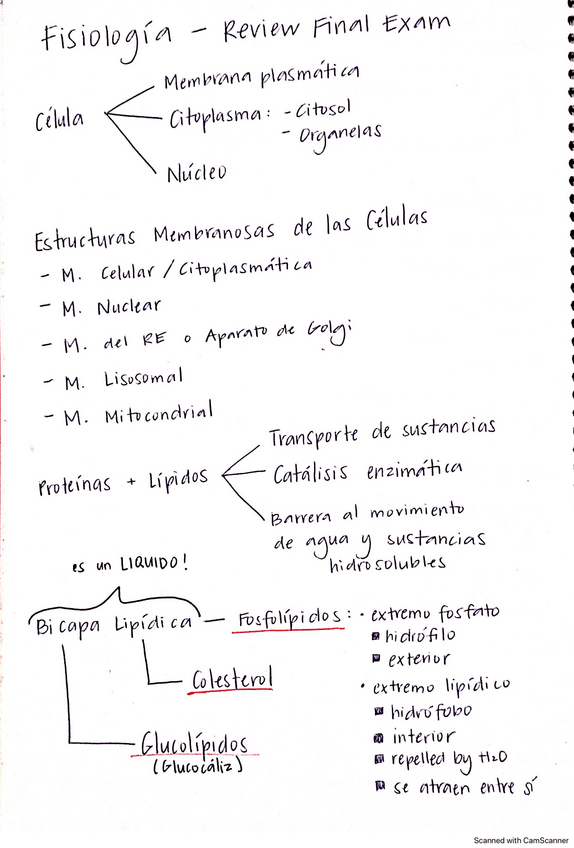 Fisiología - Review Final Exam
Célula
Membrana plasmática
Citoplasma: - Citosol
- Organelas
Núcleo
Estructuras Membranosas de las Células
- M. Celular / Citoplasmática
- M. Nuclear
- M. del RE o Aparato de Golgi
- M. Lisosomal
- M. Mitocondrial
Proteínas + Lípidos
Transporte de sustancias
Catálisis enzimática
Barrera al movimiento
de agua y sustancias
hidrosolubles
es un LIQUIDO!
Bicapa Lipídica — Fosfolípidos: · extremo fosfato
hidrófilo
exterior
· extremo lipídico
hidrófobo
interior
repelled by H2O
se atraen entre sí
Colesterol
Glucolípidos
(Glucocáliz)
Scanned with CamScanner